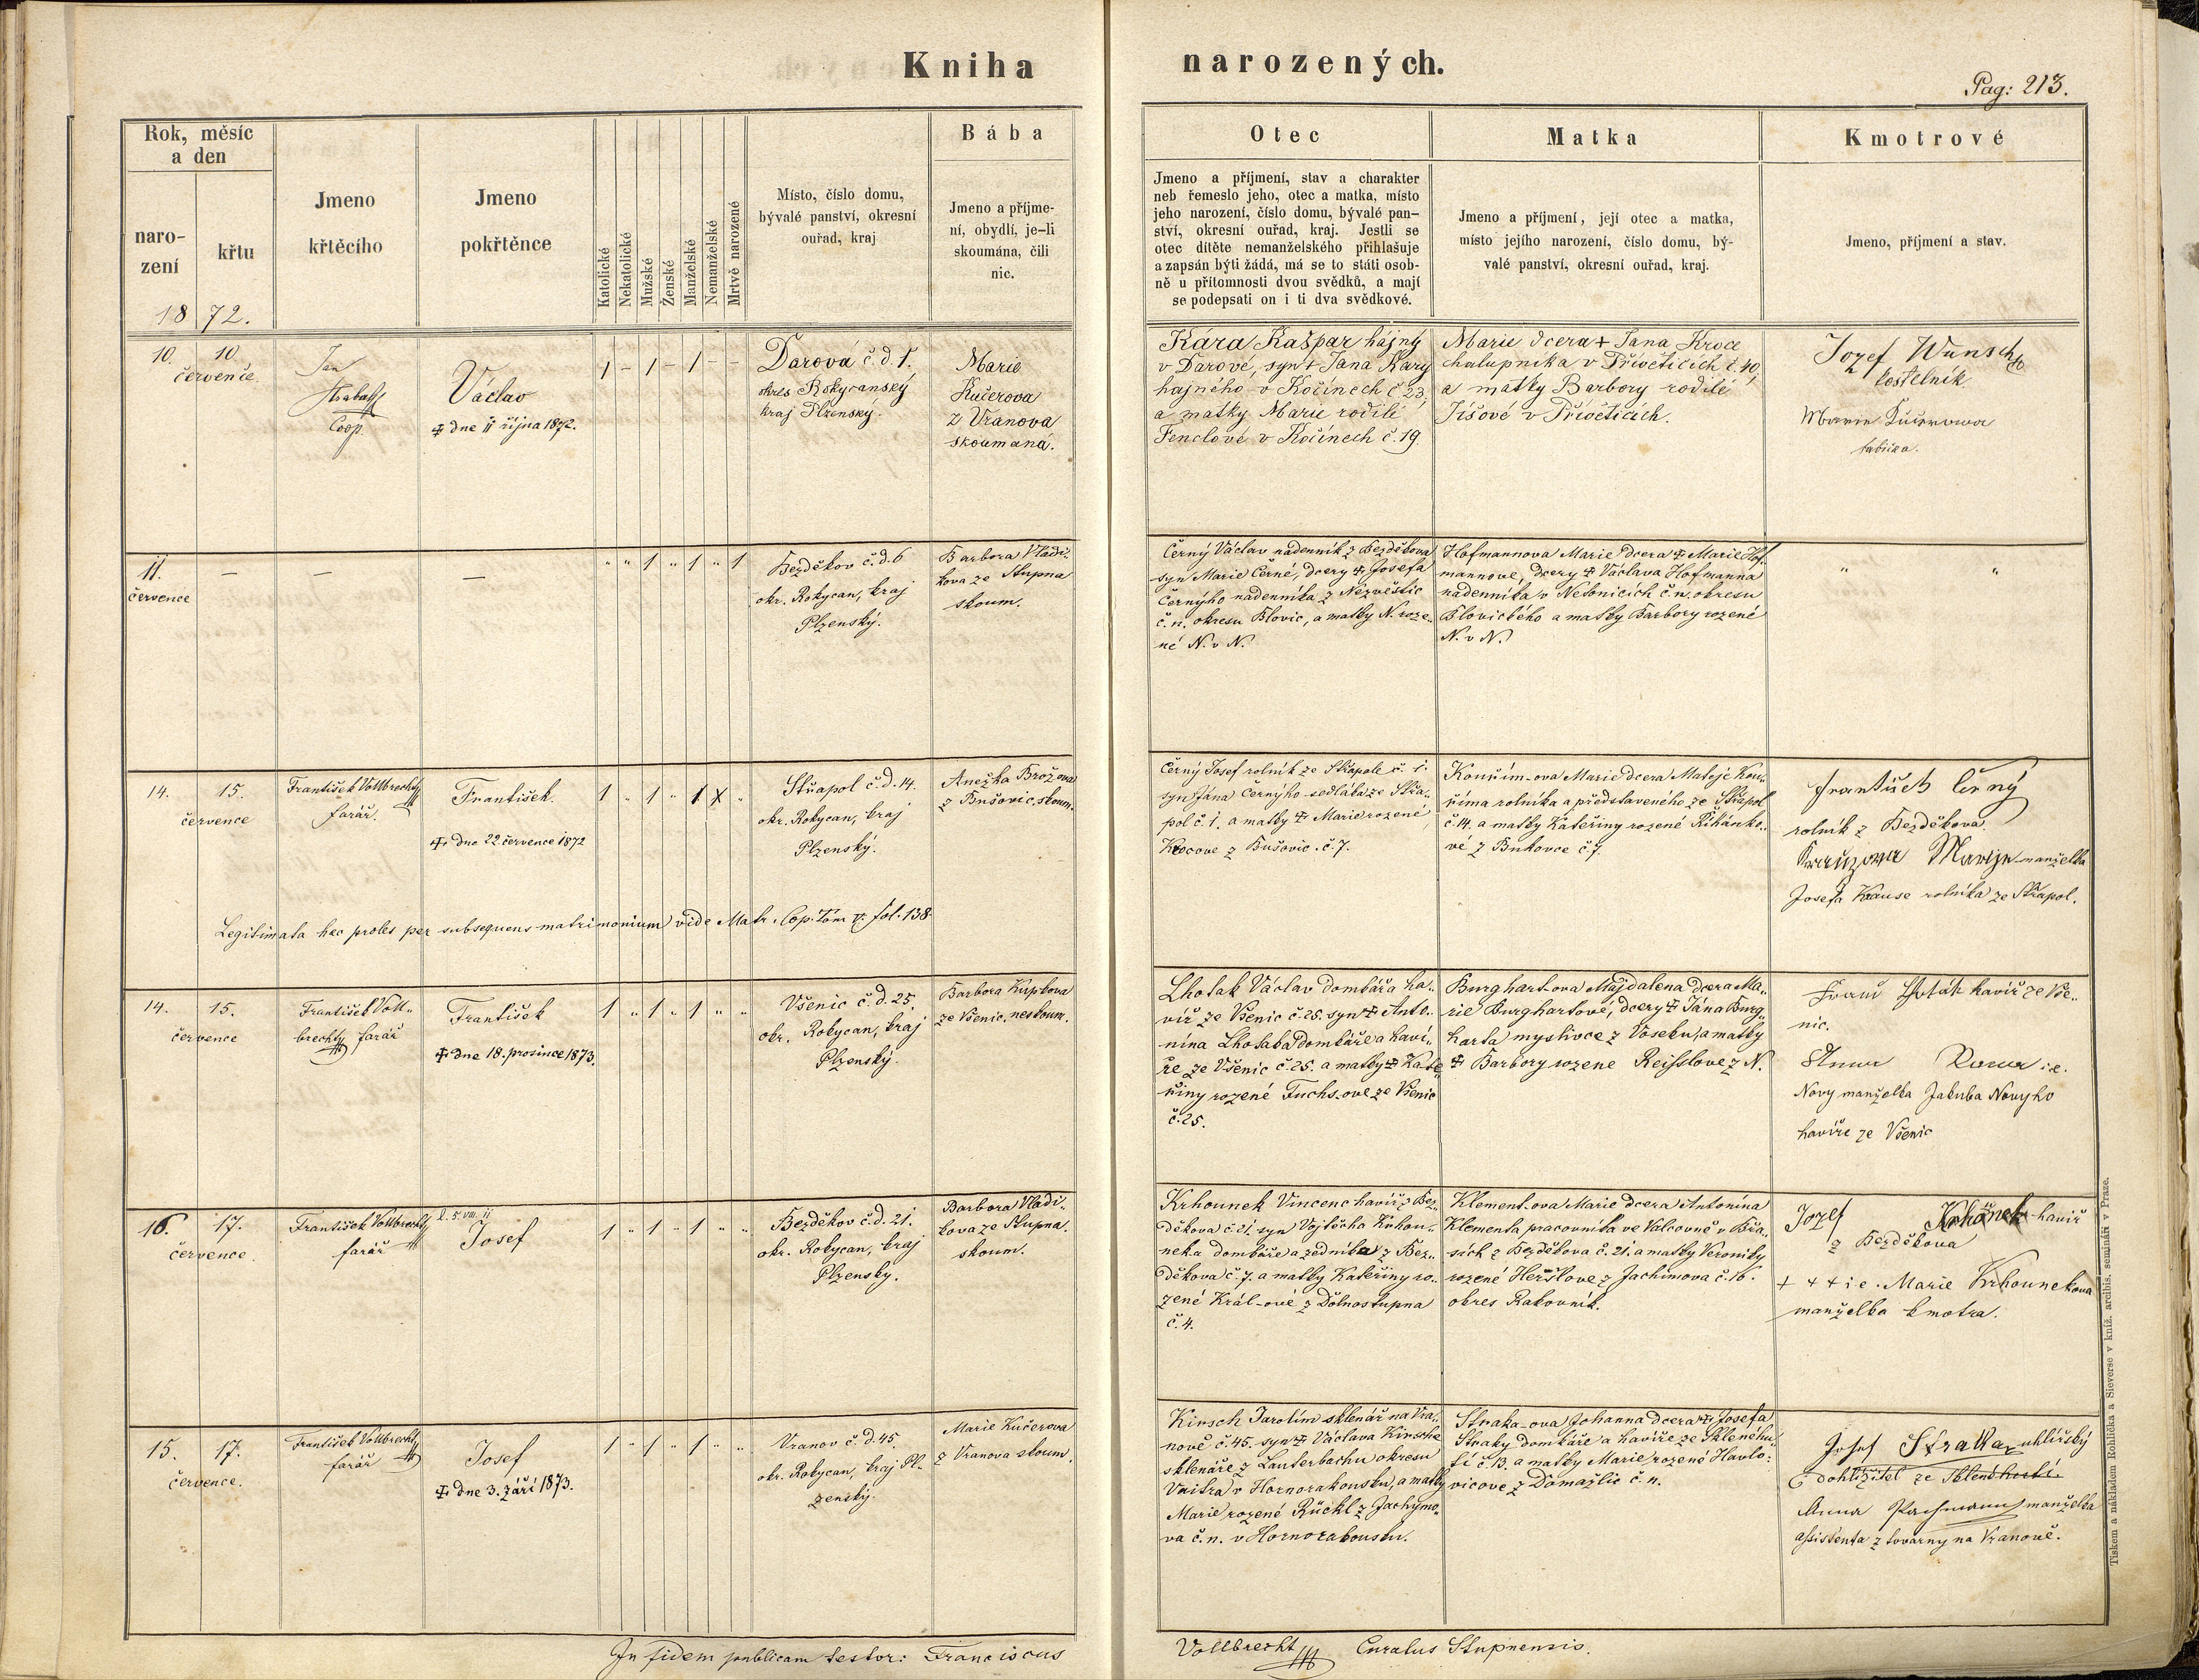 Kniha narozených.
Pag: 213.
Rok, měsíc
a den
naro-
zení
křtu
1872.
Jmeno
křtěcího
Jmeno
pokřtěnce
Katolické
Nekatolické
Mužské
Ženské
Manželské
Nemanželské
Mrtvě narozené
Místo, číslo domu,
bývalé panství, okresní
ouřad, kraj
Bába
Jmeno a příjme-
ní, obydlí, je-li
skoumána, čili
nic.
Otec
Jmeno a příjmení, stav a charakter
neb řemeslo jeho, otec a matka, místo
jeho narození, číslo domu, bývalé pan-
ství, okresní ouřad, kraj. Jestli se
otec dítěte nemanželského přihlašuje
a zapsán býti žádá, má se to státi osob-
ně u přítomnosti dvou svědků, a mají
se podepsati on i ti dva svědkové.
Matka
Jmeno a příjmení, její otec a matka,
místo jejího narození, číslo domu, bý-
valé panství, okresní ouřad, kraj.
Kmotrové
Jmeno, příjmení a stav.
10. 10.
července.
Jan
Coop.
Václav
✝ dne 11 října 1872.
1 – 1 – 1 – –
Darová č. d. 1.
okres Rokycanský
kraj Plzenský.
Marie
Kučerova
z Vranova
skoumaná.
Kára Kašpar hájný
v Darové, syn ✝ Jana Kary
hajného v Kočínech č 23,
a matky Marie rodilé
Fenclové v Kočínech č. 19.
Marie dcera ✝ Jana Kroce
chalupníka v Přívěticích č. 40,
a matky Barbory rodilé
Jíšové v Přívěticích.
Jozef Wunsch
kostelník
Marie Kučerowa
babička.
11.
července
– – –
" " 1 " 1 " 1
Bezděkov č. d. 6
okr. Rokycan, kraj
Plzenský.
Barbora Vladi-
kova ze Stupna
skoum.
Černý Václav nádenník z Bezděkova
syn Marie Černé, dcery ✝ Josefa
Černýho nádenníka z Nezvěstic
č. n. okresu Blovic, a matky N. roze-
né N. v N.
Hofmannova Marie dcera ✝ Marie Hof-
mannové, dcery ✝ Václava Hofmanna
nádenníka v Nebonicích č. n. okresu
Blovického a matky Barbory rozené
N. v N.
" "
14. 15.
července
František Vollbrecht
farář.
František.
✝ dne 22. července 1872
1 " 1 " 1 X "
Střapol č. d. 14.
okr. Rokycan, kraj
Plzenský.
Anežka Brožova
z Bušovic, skoum.
Legitimata hec proles per subsequens matrimonium vide Matr. Cop. Tom V. fol. 138.
Černý Josef rolník ze Střapole č. 1.
syn Jána Černýho sedláka ze Střa-
pol č. 1. a matky ✝ Marie rozené
Krocove z Bušovic. č. 7.
Kouřím-ova Marie dcera Matěje Kou-
říma rolníka a představeného ze Střapol
č. 14. a matky Kateřiny rozené Řihánko-
vé z Bukovce č 7.
František Černý
rolník z Bezděkova.
Krauzowa Marije manželka
Josefa Krause rolníka ze Střapol.
14. 15.
července
František Voll-
brecht farář
František
✝ dne 18. prosince 1873.
1 " 1 " 1 " "
Všenic č. d. 25.
okr. Rokycan, kraj
Plzenský.
Barbora Kupkova
ze Všenic, neskoum.
Lhotak Václav domkář a ha-
víř ze Všenic č. 25. syn ✝ Anto-
nína Lhotaka domkáře a haví-
ře ze Všenic č. 25. a matky ✝ Kate-
řiny rozené Fuchs-ove ze Všenic
č. 25.
Burghart-ova Majdalena dcera Ma-
rie Burghartové, dcery ✝ Jána Burg-
harta myslivce z Vóseku, a matky
✝ Barbory rozene Reisslove z N.
havíř ze Vše-
nic.
i. e.
Novy manželka Jakuba Novyho
havíře ze Všenic
16. 17.
července.
František Vollbrecht
farář
Josef
1 " 1 " 1 " "
Bezděkov č. d. 21.
okr. Rokycan, kraj
Plzenský.
Barbora Vladi-
kova ze Stupna.
skoum.
Krhounek Vincenc havíř z Bez-
děkova č. 21. syn Vojtěcha Krhou-
neka domkáře a zedníka z Bez-
děkova č. 7. a matky Kateřiny ro-
zené Král-ové z Dolnostupna
č. 4.
Klement-ova Marie dcera Antonína
Klementa, pracovníka ve Valcovně v Břa-
sích z Bezděkova č. 21. a matky Veroniky
rozené Heřstove z Jachimova č. 16.
okres Rakovník.
Jozef Krhounek havíř
z Bezděkova
+ + + i e. Marie Krhounekova
manželka kmotra.
15. 17.
července.
František Vollbrecht
farář
Josef
✝ dne 3. září 1873.
1 " 1 " 1 " "
Vranov č. d. 45.
okr. Rokycan, kraj Pl-
zenský.
Marie Kučerova
z Vranova skoum.
Kirsch Jarolím sklenář na Vra-
nově č. 45. syn ✝ Václava Kirsche
sklenáře z Lauterbachu okresu
Vaitra v Hornorakousku, a matky
Marie rozené Rückl z Jachymo-
va č. n. v Hornorakousku.
Straka-ova Johanna dcera ✝ Josefa
Straky domkáře a havíře ze Skleněhu-
tí č. 13. a matky Marie rozené Havlo-
vicove z Domažlic č. n.
Josef Straka uhlířský
dohližitel ze Sklenéhutí.
Anna manželka
assistenta z továrny na Vranově.
In fidem publicam testor: Franciscus Vollbrecht Curatus Stupnensis.
Tiskem a nákladem Rohlíčka a Sieverse v kníž. arcibis. semináři v Praze.